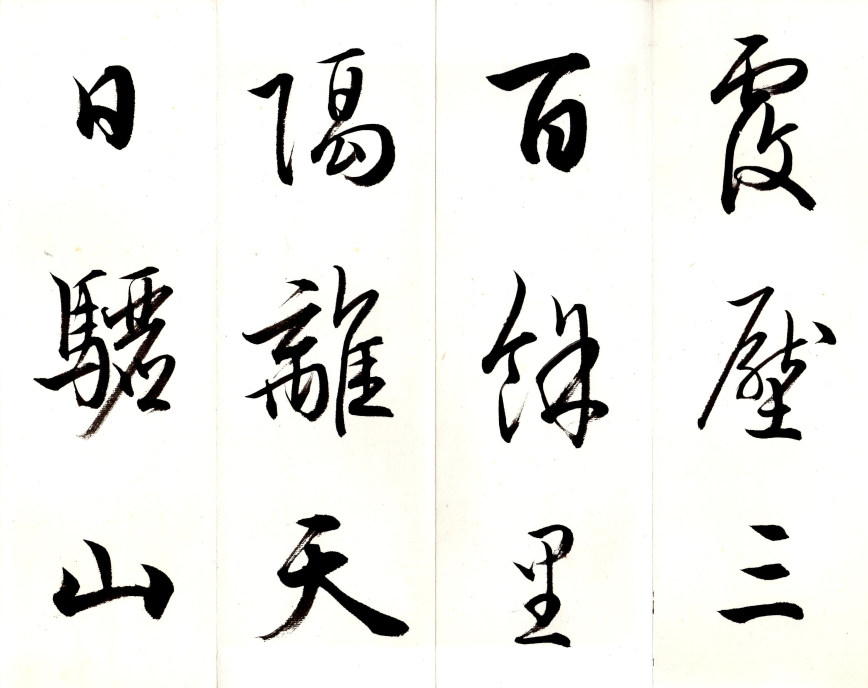 覆壓三
百餘里
隔離天
日驪山